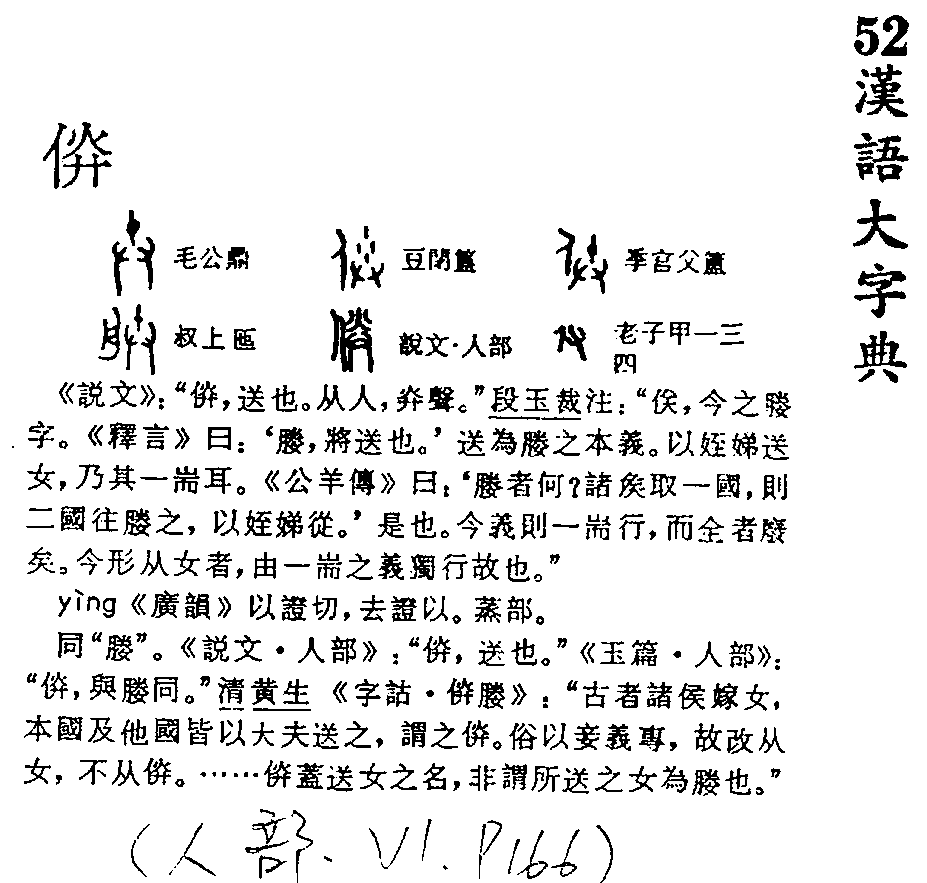 52漢語大字典
㑞
毛公鼎
豆閉簋
季宫父簠
叔上匜
說文·人部
老子甲一三
四
《説文》：“㑞，送也。从人，灷聲。”段玉裁注：“㑞，今之媵
字。《釋言》曰：‘媵，將送也。’送為媵之本義。以姪娣送
女，乃其一耑耳。《公羊傳》曰：‘媵者何？諸矦取一國，則
二國往媵之，以姪娣從。’是也。今義則一耑行，而全者廢
矣。今形从女者，由一耑之義獨行故也。”
yìng《廣韻》以證切，去證以。蒸部。
同“媵”。《説文·人部》：“㑞，送也。”《玉篇·人部》：
“㑞，與媵同。”清黄生《字詁·㑞媵》：“古者諸侯嫁女，
本國及他國皆以大夫送之，謂之㑞。俗以妾義專，故改从
女，不从㑞。……㑞蓋送女之名，非謂所送之女為媵也。”
(人部. V1. P166)